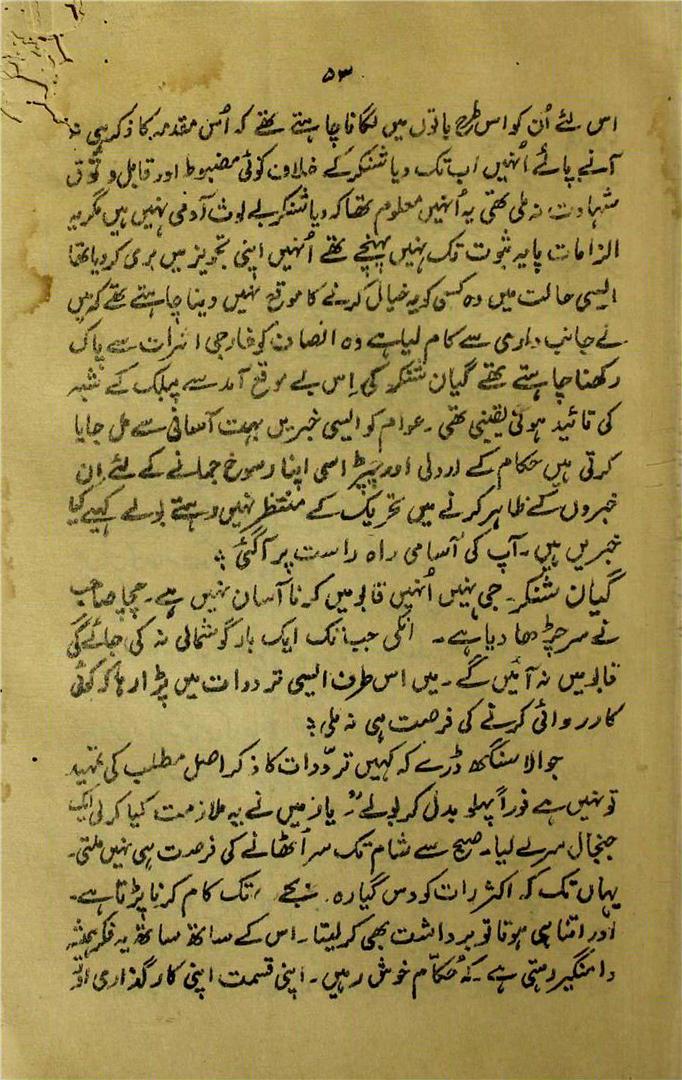 ۵۳
اس لئے اُن کو اس طرح باتوں میں لگانا چاہتے تھے کہ اُس مقدمہ کا ذکر ہی نہ
آنے پائے اُنہیں اب تک دیا شنکر کے خلاف کوئی مضبوط اور قابل و ثوق
شہادت نہ ملی تھی یہ اُنہیں معلوم تھا کہ دیا شنکر بے لوث آدمی نہیں ہیں مگر یہ
الزامات پایہ ثبوت تک نہیں پہنچے تھے اُنہیں اپنی تجویز میں بری کر دیا تھا
ایسی حالت میں وہ کسی کو یہ خیال کرنے کا موقع نہیں دینا چاہتے تھے کہ میں
نے جانب داری سے کام لیا ہے وہ انصاف کو خارجی اثرات سے پاک
رکھنا چاہتے تھے گیان شنکر کی اِس بے موقع آمد سے پبلک کے شبہ
کی تائید ہوئی یقینی تھی۔ عوام کو ایسی خبریں بہت آسانی سے مل جایا
کرتی ہیں حکام کے اردلی اور چپڑاسی اپنا رسوخ جمانے کے لئے اِن
خبروں کے ظاہر کرنے میں تحریک کے منتظر نہیں رہتے بولے کہیے کیا
خبریں ہیں۔ آپ کی آسامی راہ راست پر آ گئی ؟
گیان شنکر۔ جی نہیں اُنہیں قابو میں کرنا آسان نہیں ہے۔ چچا صاحب
نے سر چڑھا دیا ہے۔ انکی جب تک ایک بار گوشمالی نہ کی جائے گی
قابو میں نہ آئیں گے۔ میں اس طرف ایسی تردوات میں پڑا رہا کہ کوئی
کارروائی کرنے کی فرصت ہی نہ ملی ؛
جوالا سنگھ ڈرے کہ کہیں تردّدات کا ذکر اصل مطلب کی تمہید
تو نہیں ہے فوراً پہلو بدل کر بولے "یار میں نے یہ ملازمت کیا کر لی ایک
جنجال سر لے لیا۔ صبح سے شام تک سر اُٹھانے کی فرصت ہی نہیں ملتی۔
یہاں تک کہ اکثر رات کو دس گیارہ بجے تک کام کرنا پڑتا ہے۔
اور اتنا ہی ہوتا تو برداشت بھی کر لیتا۔ اس کے ساتھ ساتھ یہ فکر ہمیشہ
دامنگیر رہتی ہے۔ کہ حُکّام خوش رہیں۔ اپنی قسمت اپنی کارگذاری اور